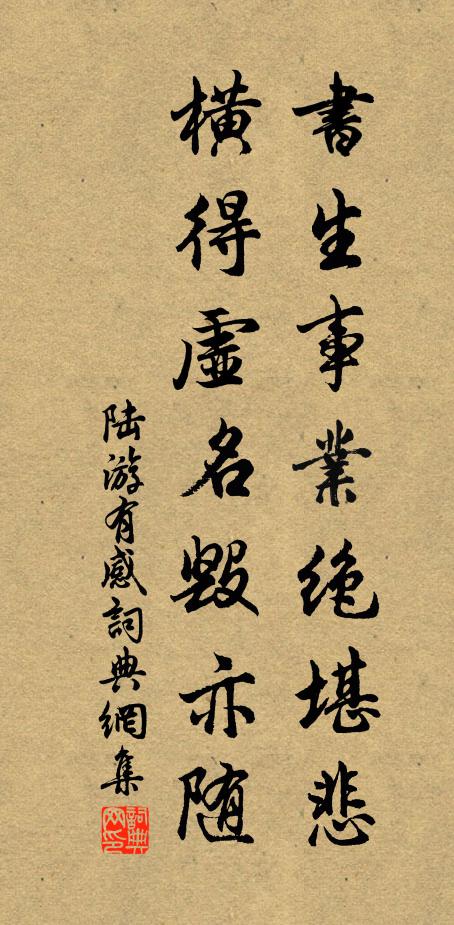 書生事業絶堪悲
橫得虛名毀亦随
陸游有感詞典網集
詞典网印